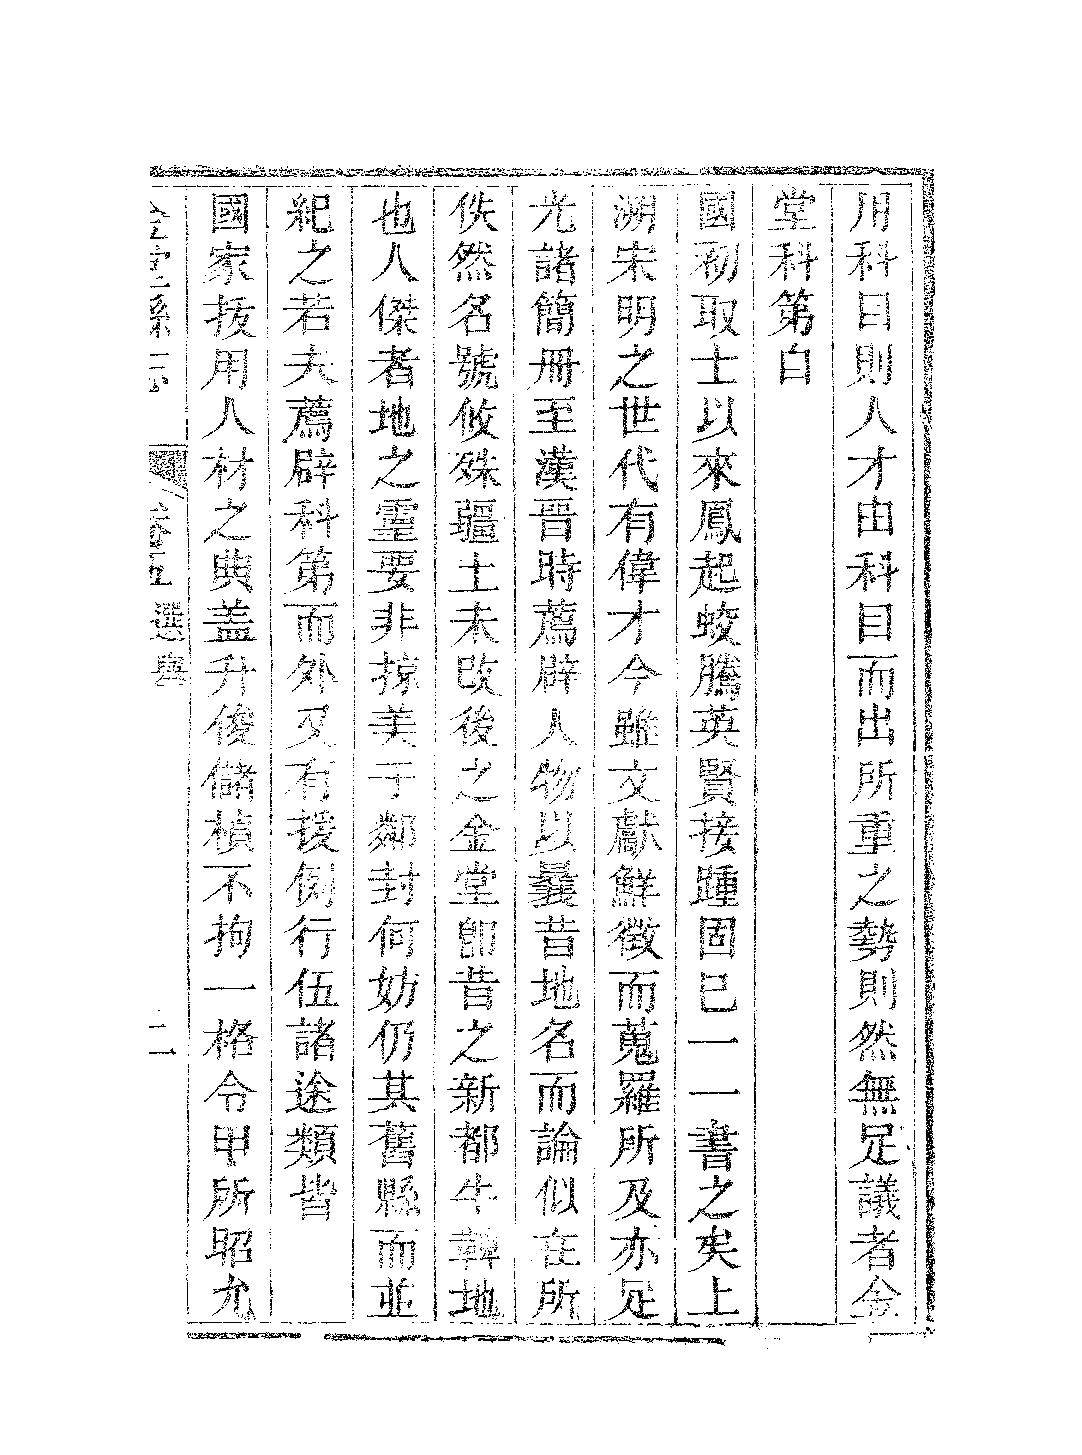 用科目則人才由科目而出所重之勢則然無足議者金
堂科第自
國初取士以來鳳起蛟騰英賢接踵固已一一書之矣上
溯宋明之世代有偉才今雖文獻鮮徵而蒐羅所及亦足
光諸簡冊至漢晉時薦辟人物以曩昔地名而論似在所
佚然名號攸殊疆土未改後之金堂卽昔之新都牛鞞地
也人傑者地之靈要非掠美于鄰封何妨仍其舊縣而並
紀之若夫薦辟科第而外又有拔側行伍諸途類皆
國家拔用人材之典蓋升俊儲楨不拘一格令甲所昭允
金堂縣志 卷五 選舉 二